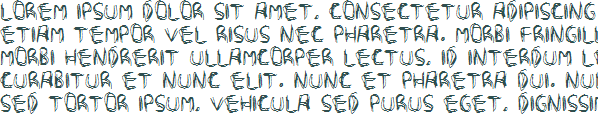 LOREM IPSUM DOLOR SIT AMET. CONSECTETUR ADIPISCING
ETIAM TEMPOR VEL RISUS NEC PHARETRA. MORBI FRINGILL
MORBI HENDRERIT ULLAMCORPER LECTUS. ID INTERDUM L
CURABITUR ET NUNC ELIT. NUNC ET PHARETRA DUI. NU
SED TORTOR IPSUM. VEHICULA SED PURUS EGET. DIGNISSI